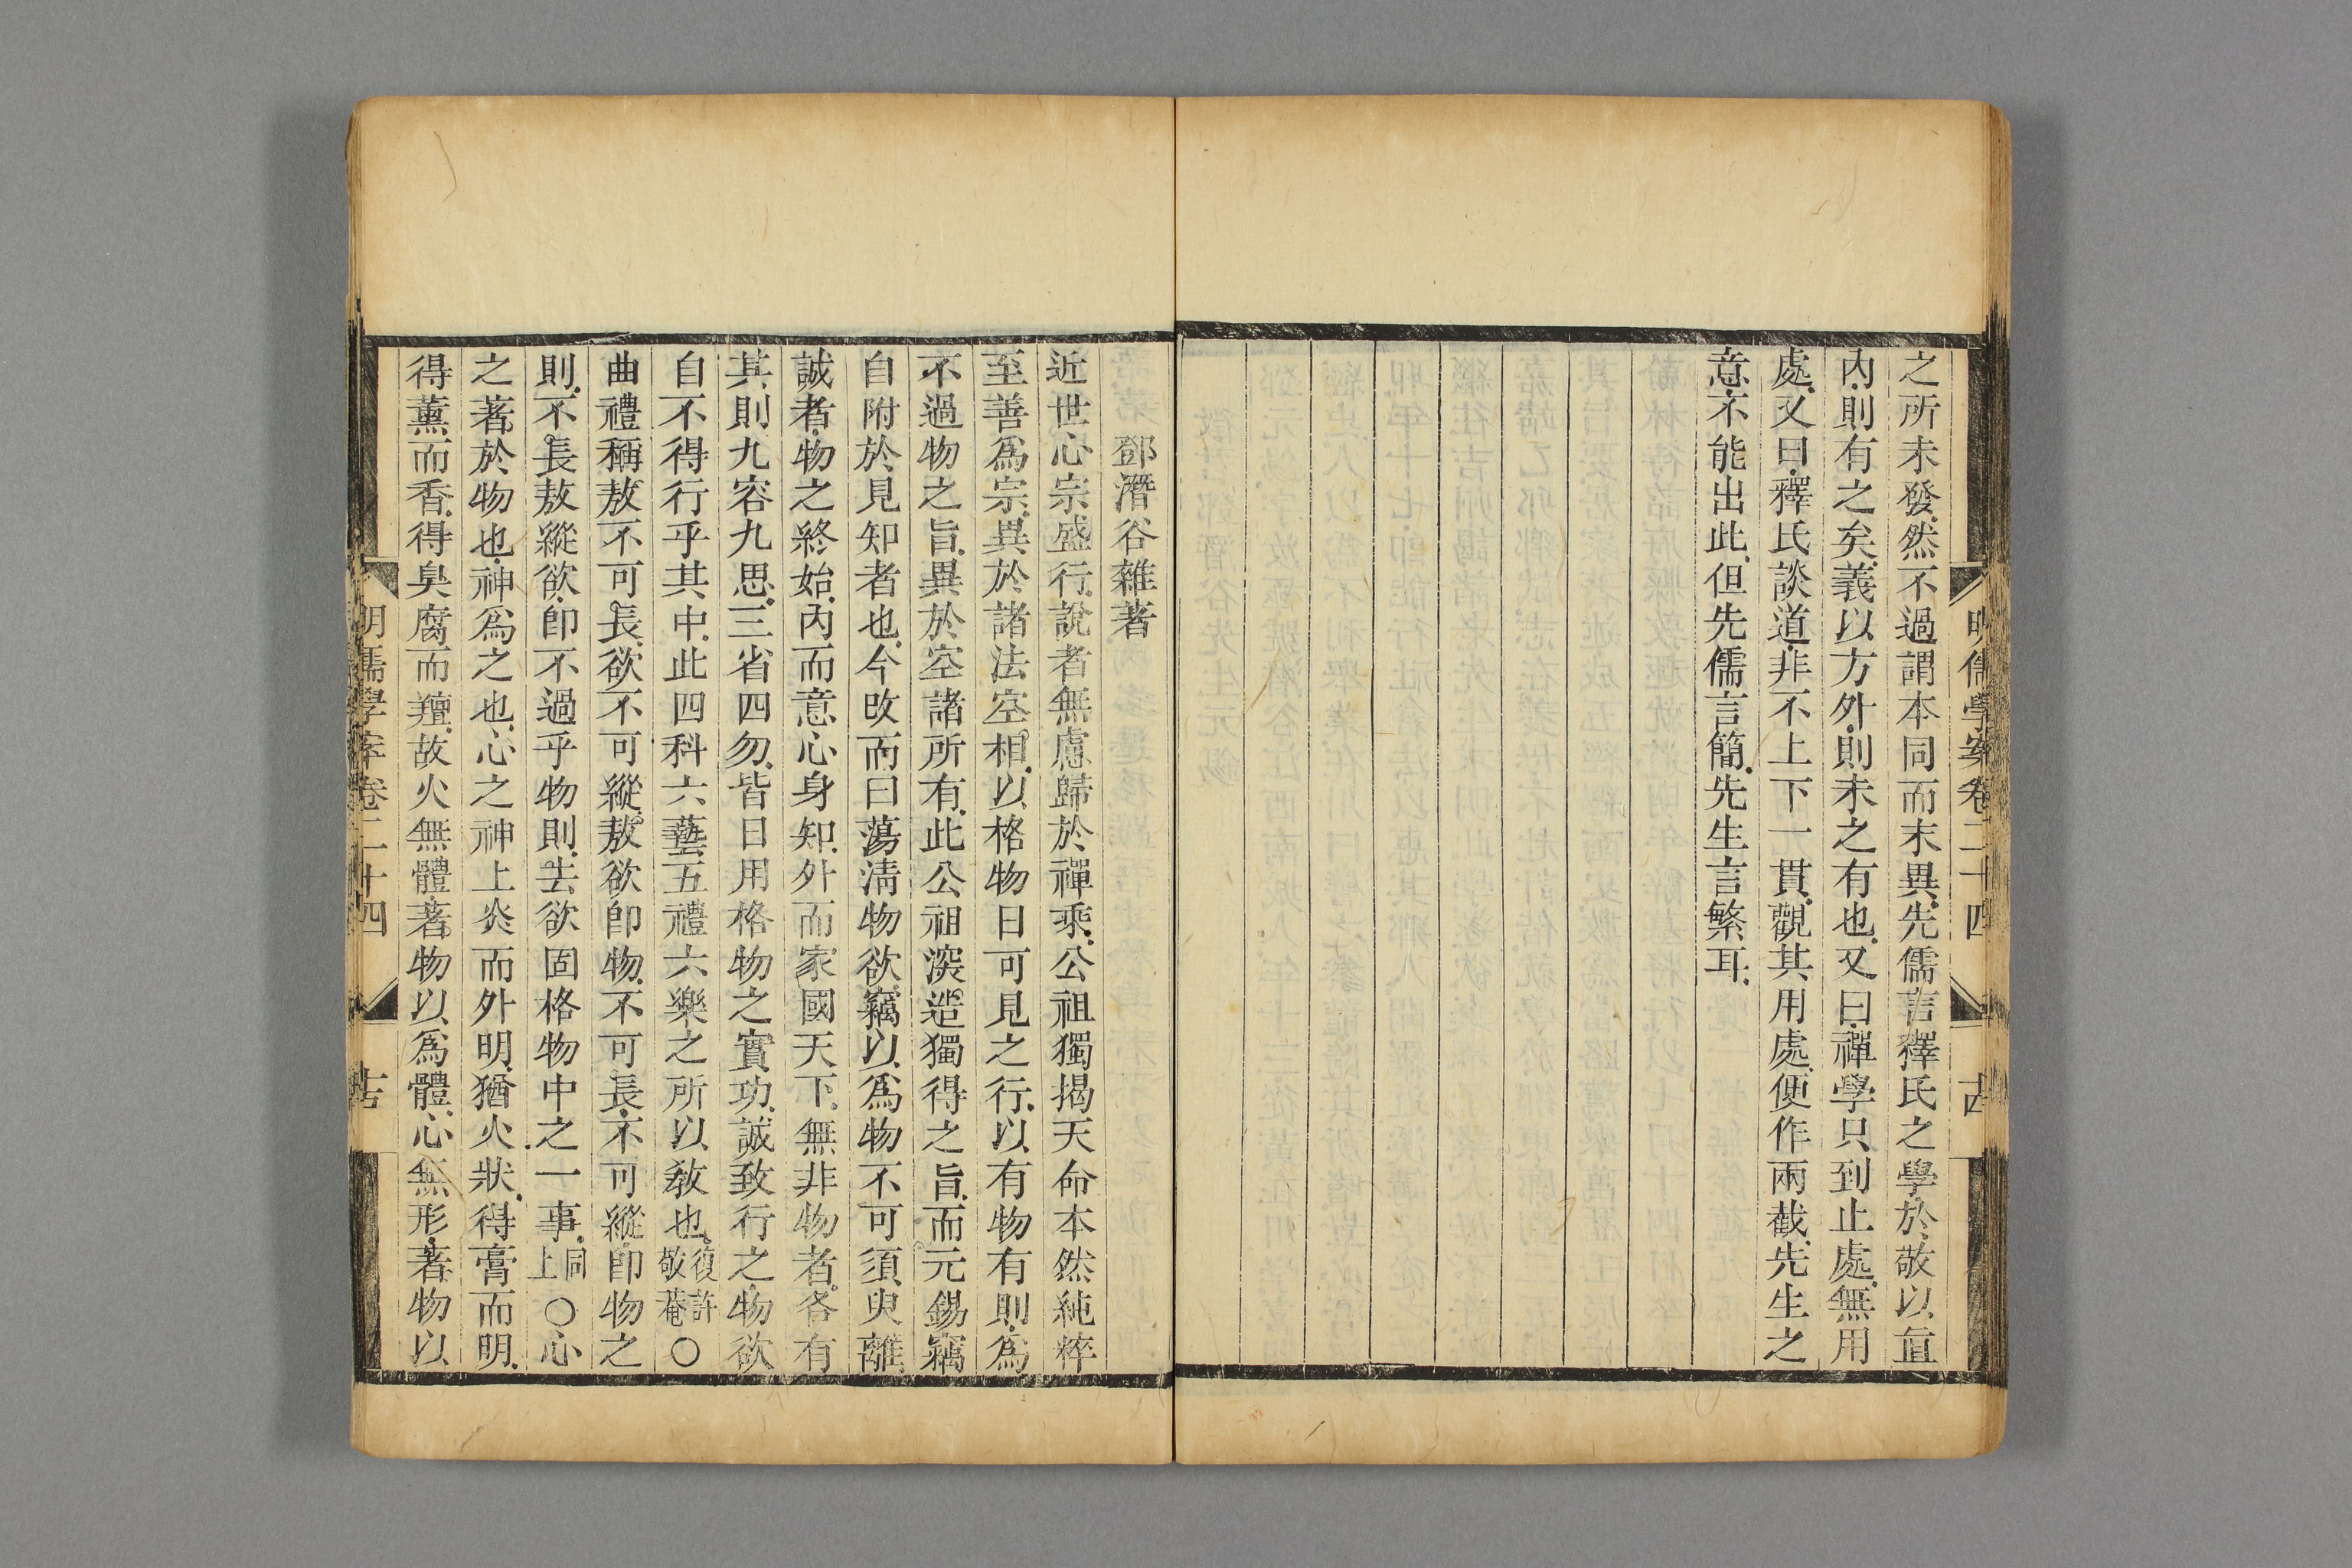 明儒學案卷二十四
古
之所未發然不過謂本同而末異先儒言釋氏之學於敬以直
內則有之矣義以方外則未之有也又曰禪學只到止處無用
處又曰釋氏談道非不上下一貫觀其用處便作兩截先生之
意不能出此但先儒言簡先生言繁耳
鄧潛谷雜著
近世心宗盛行說者無慮歸於禪乘公祖獨揭天命本然純粹
至善爲宗異於諸法空相以格物日可見之行以有物有則爲
不過物之旨異於空諸所有此公祖深造獨得之旨而元錫竊
自附於見知者也今改而曰蕩淸物欲竊以爲物不可須臾離
誠者物之終始內而意心身知外而家國天下無非物者各有
其則九容九思三省四勿皆日用格物之實功誠致行之物欲
自不得行乎其中此四科六藝五禮六樂之所以敎也復許敬菴○
曲禮稱敖不可長欲不可縱敖欲卽物不可長不可縱卽物之
則不長敖縱欲卽不過乎物則去欲固格物中之一事同上○心
之著於物也神爲之也心之神上炎而外明猶火狀得膏而明
得薰而香得臭腐而羶故火無體著物以爲體心無形著物以
明儒學案卷二十四